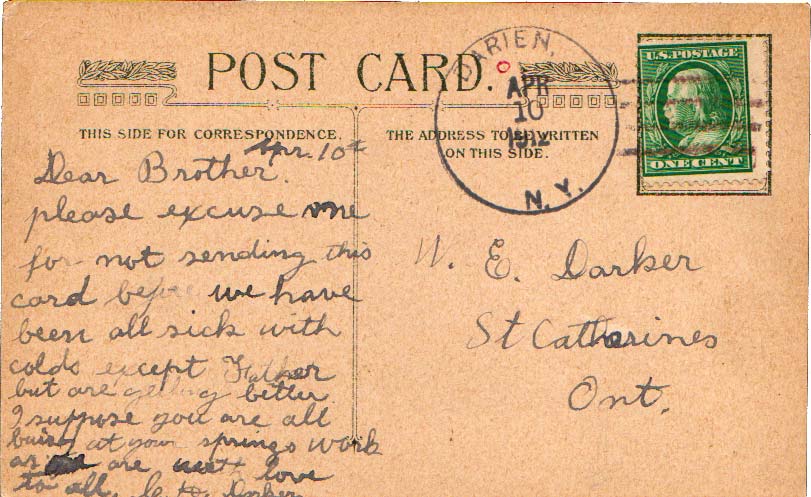 POST CARD.
THIS SIDE FOR CORRESPONDENCE.
THE ADDRESS TO BE WRITTEN
ON THIS SIDE.
DARIEN,
APR
10
1912
N.Y.
U.S. POSTAGE
ONE CENT
Apr. 10
Dear Brother.
please excuse me
for not sending this
card before we have
been all sick with
colds except Father
but are getting better
I suppose you are all
buisy at your springs work
as are love
to all. Darker
W. E. Darker
St Catharines
Ont.